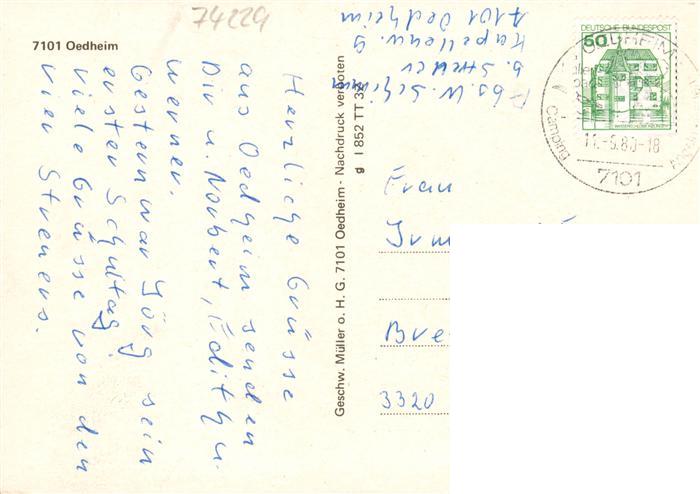 74229
7101 Oedheim
Herzliche Grüsse
aus Oedheim senden
Dir u. Norbert, Edith u.
Werner.
Gestern war Jörg sein
erster Schultag.
Viele Grüsse von den
vier Streuers.
Geschw. Müller o. H. G. 7101 Oedheim - Nachdruck verboten
g I 852 TT 33
b. Streuer
Kapellenw. 9
7101 Oedheim
DEUTSCHE BUNDESPOST
50
WASSERSCHLOSS INZLINGEN
OEDHEIM
Camping
-5.80-18
7101
Frau
Irm
Bre
3320